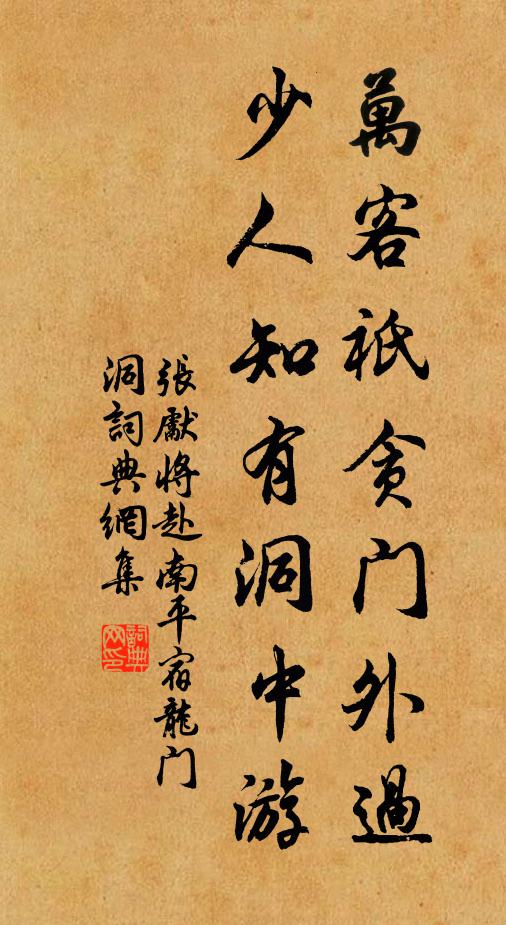 萬客祇貪门外過
少人知有洞中游
張獻將赴南平宿龍门
洞詞典網集
詞典
网印